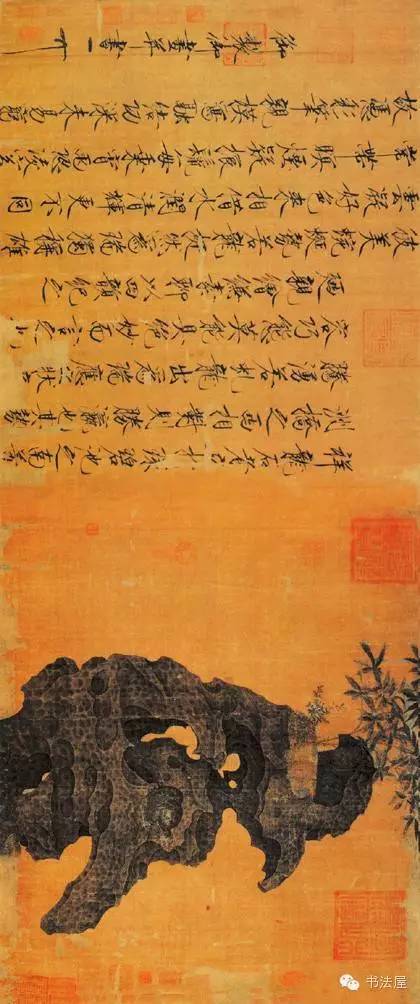 祥龍石者立於環碧池之南芳
洲橋之西相對則勝瀛也其勢
騰湧若虬龍出為瑞應之狀奇
容巧態莫能具絕妙而言之也
廼親繪縑素聊以四韻紀之
彼美蜿蜒勢若龍挺然為瑞獨稱雄
雲凝好色來相借水潤清輝更不同
常帶瞑煙疑振鬣每乘宵雨恐凌空
故憑彩筆親模寫融結功深未易窮
御製御畫并書
书法屋